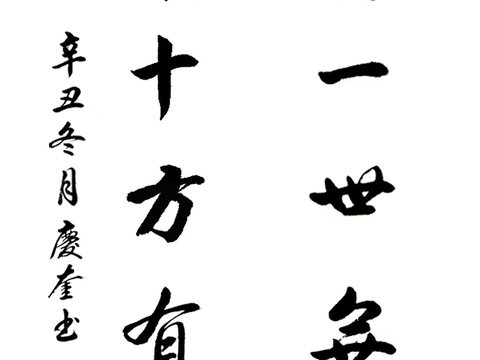 一世無
十方有
辛丑冬月慶奎书